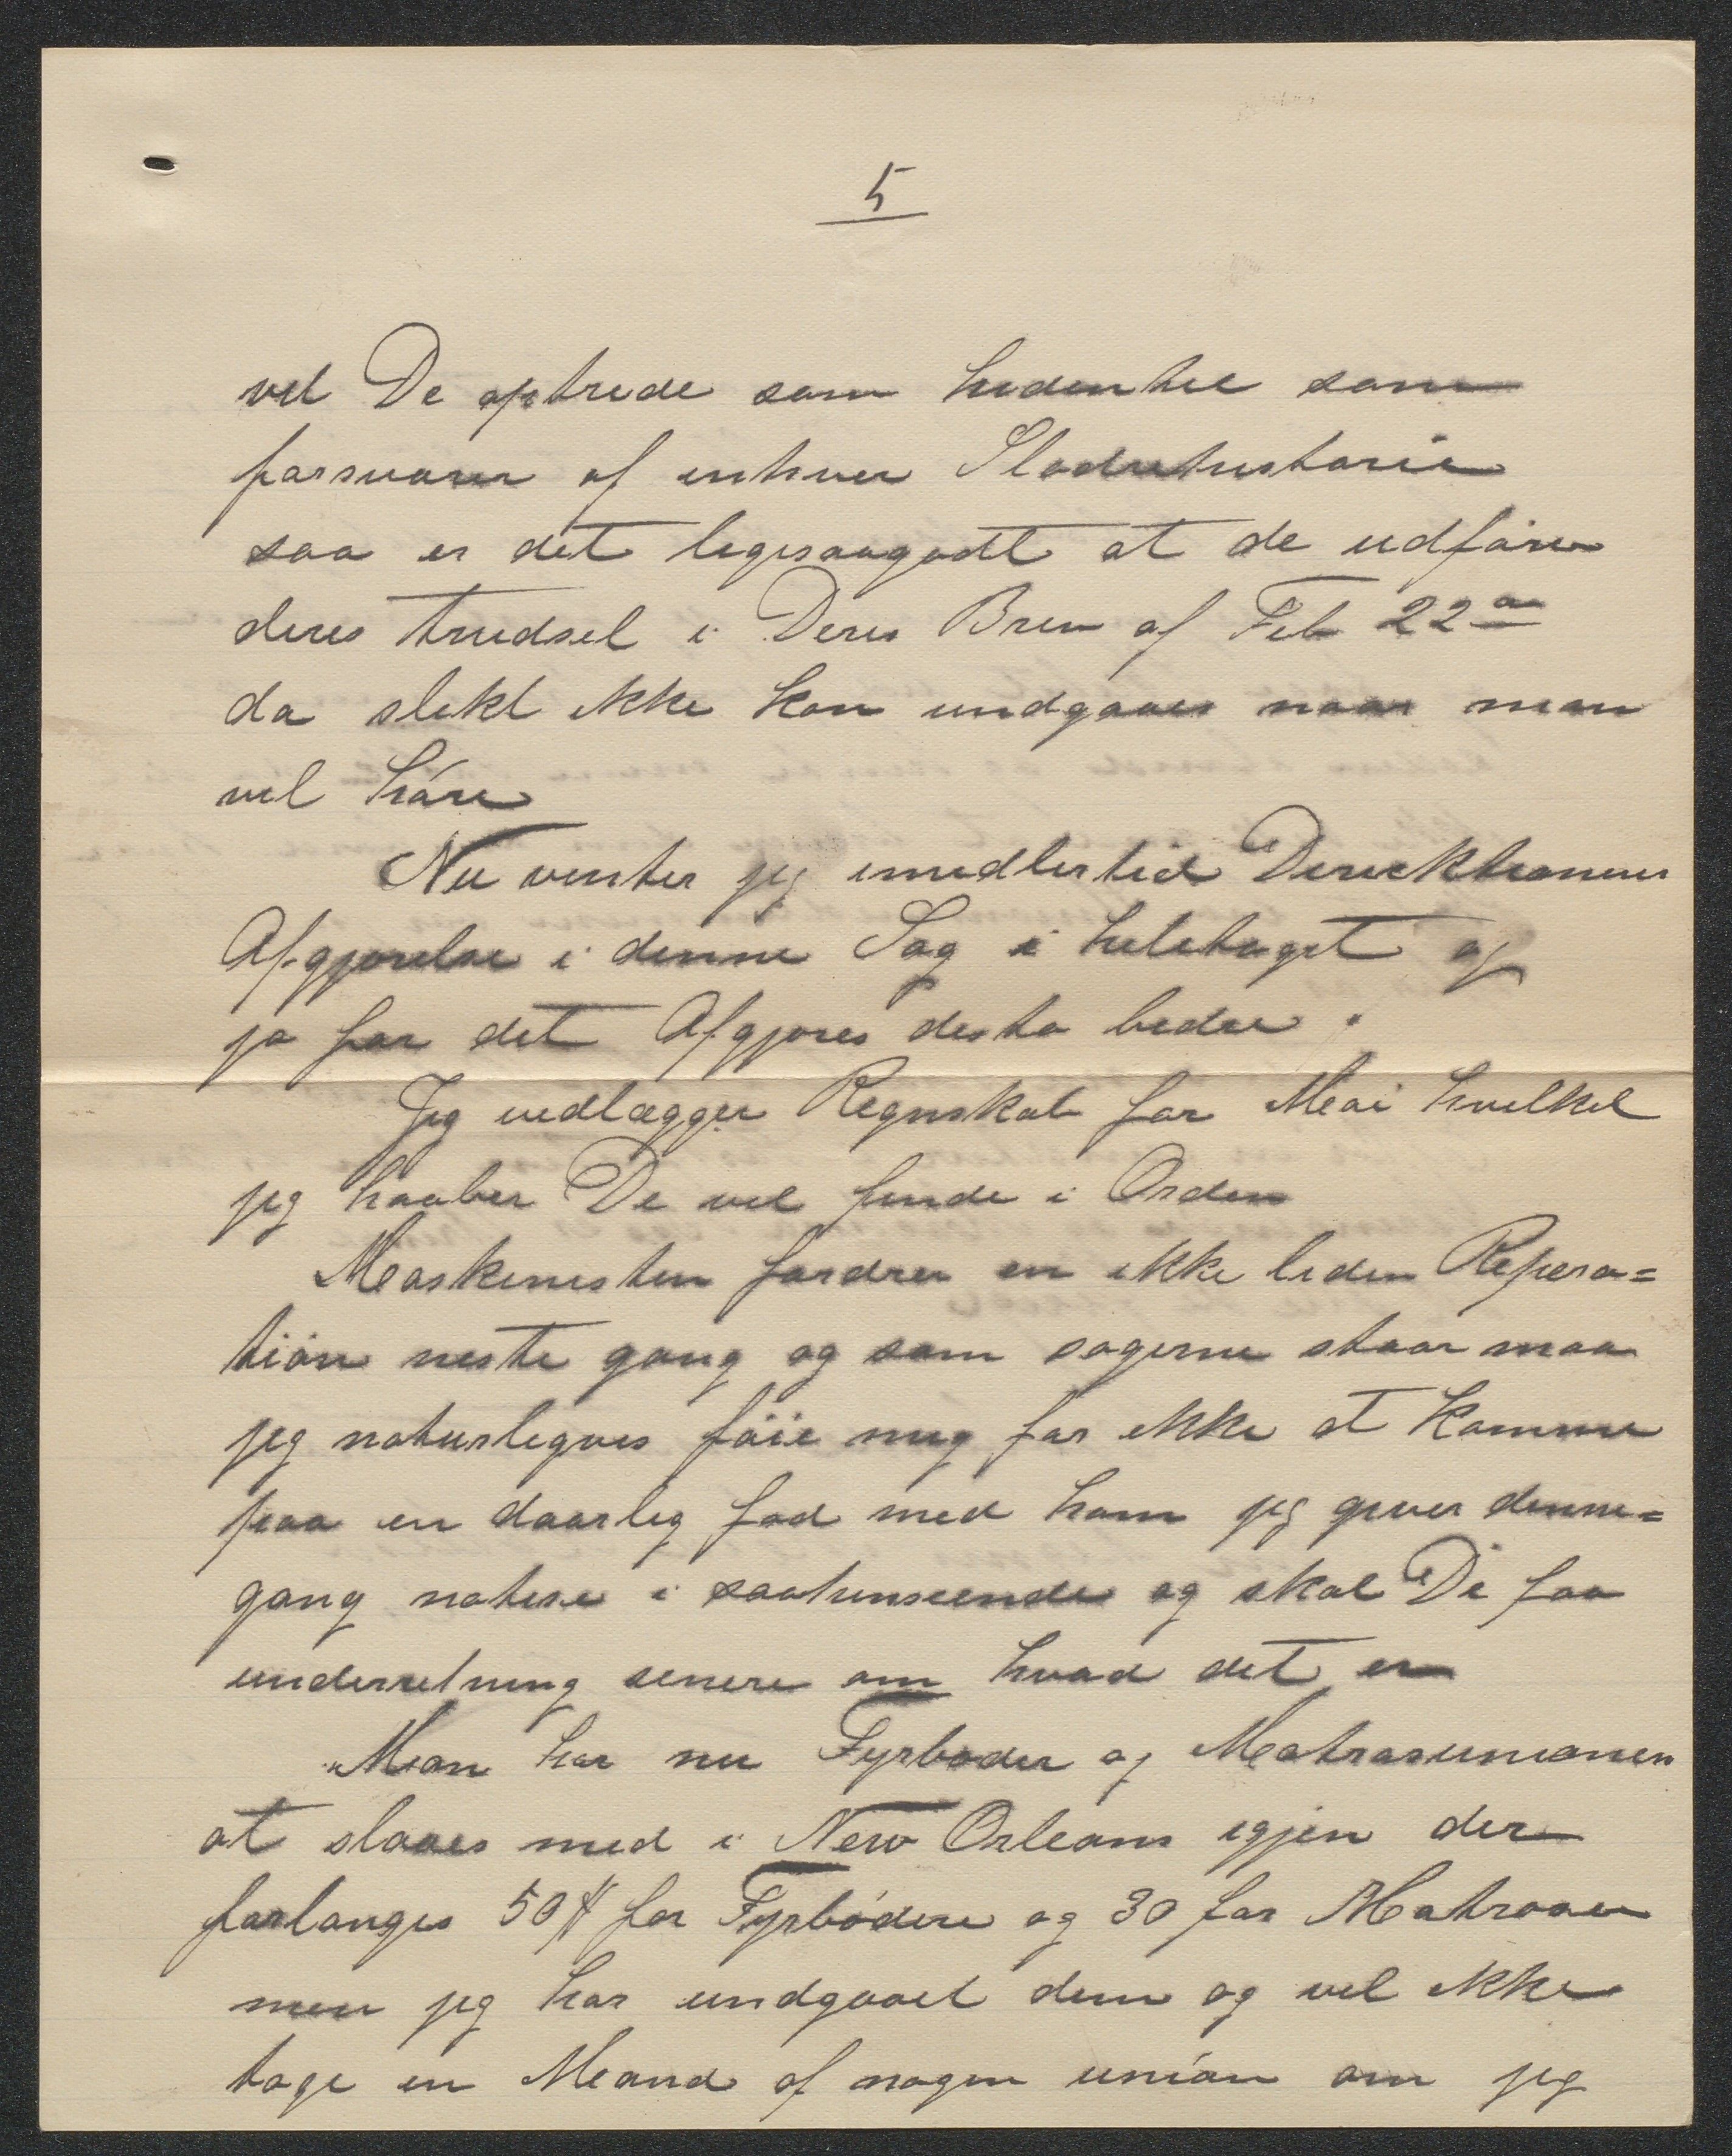 5
vil De optrede som hidentil som
forsvarer af enhver Sladrehistorie
saa er det ligesaagodt at de udfører
deres trudsel i Deres Brev af Feb 22de
da slikt ikke kan undgaaes naar man
vil høre
Nu venter jeg imidlertid Direcktionens
Afgjørelse i denne Sag i heletaget og
jo før det Afgjøres desto bedre.
Jeg vedlægger Regnskab for Mai hvilket
jeg haaber De vil finde i Orden
Maskinisten fordrer en ikke liden Repera=
tion neste gang og som sagerne staar maa
jeg naturligvis føie mig for ikke at komme
paa en daarlig fod med ham jeg giver denne=
gang notise i saahenseende og skal De faa
underretning senere om hvad det er
Man har nu Fyrbøder og Matrosunionen
at slaaes med i New Orleans igjen der
forlanges 50$ for Fyrbødere og 30 for Matroser
men jeg har undgaaet dem og vil ikke
tage en Mand af nogen union om jeg